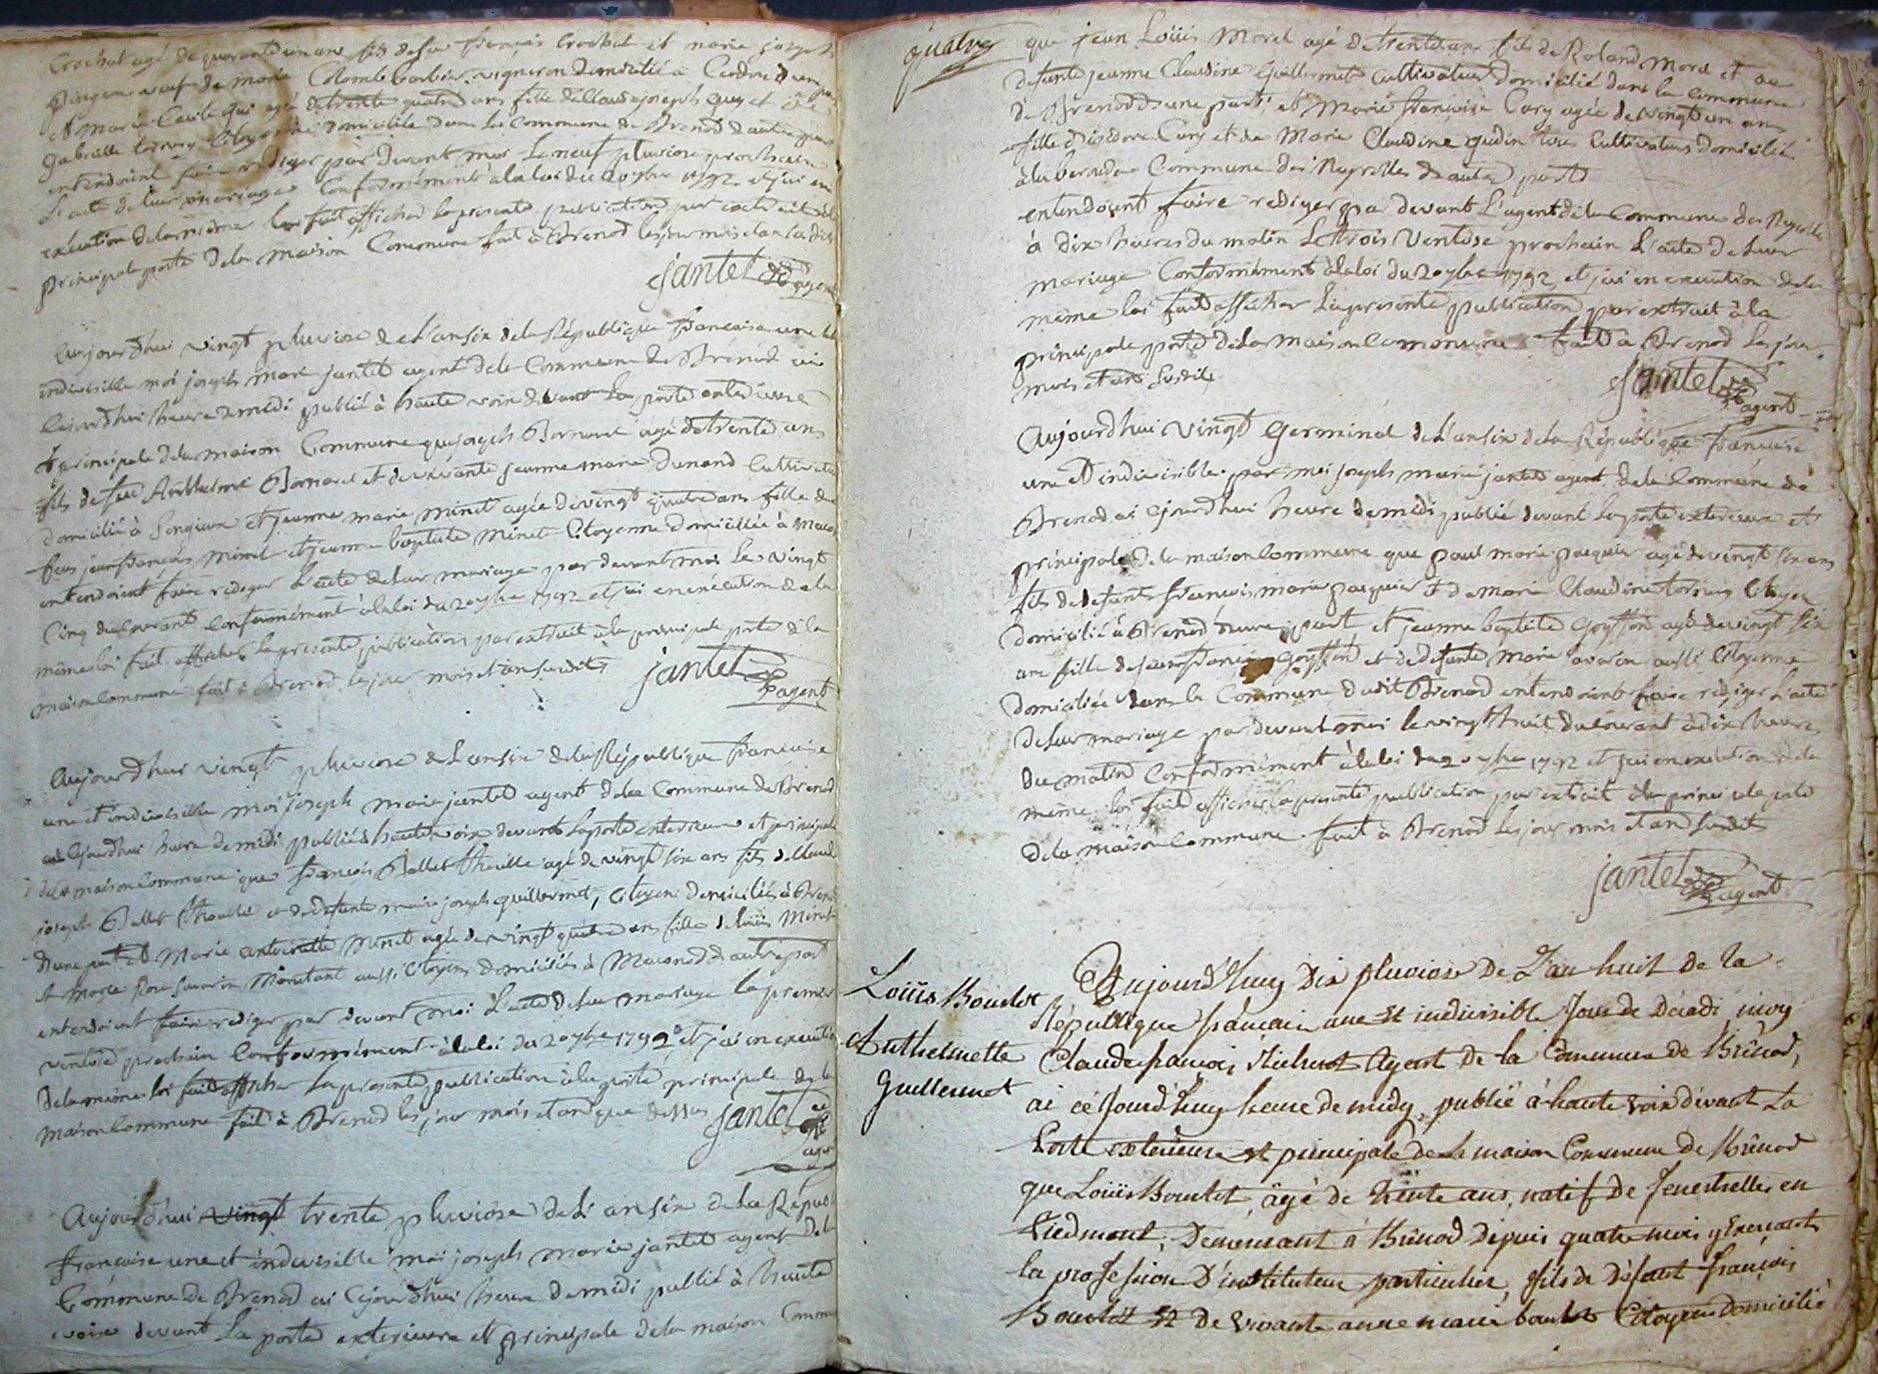 Crochat agé de quarante un ans fils de feu françois Crochat et marie joseph
pingeon veuf de marie Colombe barbier vigneron domicilié à Cerdon d'une part
et Marie Cecile Guy agée de trente quatre ans fille de Claude joseph Guy et de
Gabrielle tornery Citoyenne domicilié dans la Commune de Brenod d'autre part
entendoient faire rediger par devant moi le neuf pluviose prochain
l'acte de leur mariage Conformément à la loi du 20 7bre 1792 et j'ai en
exécution de la même loi fait afficher la presente publication par extrait à la
principale porte de la maison Commune fait à Brenod les jour mois et an susdits
jantet
agent
Aujourd'hui vingt pluviose de l'an six de la République française une et
indivisible moi joseph marie jantet agent de la Commune de Brenod ai
cejourd'hui heure de midi publié à haute voix devant la porte exterieure
et principale de la maison Commune que joseph Bornarel agé de trente ans
fils de feu Anthelme Bornarel et de vivante jeanne marie Dunand Cultivateur
domicilié à Songieux et jeanne marie minet agée de vingt quatre ans fille de
feu jean françois minet et jeanne baptiste minet Citoyenne domiciliée à Maco
entendoient faire rediger l'acte de leur mariage par devant moi le vingt
Cinq du Courant Conformément à la loi du 20 7bre 1792 et j'ai en exécution de la
même loi fait afficher la presente publication par extrait à la principale porte de la
maison Commune fait à Brenod les jour mois et an susdits
jantet
agent
Aujourd'hui vingt pluviose de l'an six de la République française
une et indivisible moi joseph marie jantet agent de la Commune de Brenod
ai cejourd'hui heure de midi publié à haute voix devant la porte exterieure et principale
de la maison Commune que françois Ballet agé de vingt six ans fils de Claude
joseph Ballet et de defunte marie joseph guillermet, Citoyens domiciliés à Brenod
d'une part et Marie antoinette Minet agée de vingt quatre ans fille de Loüis Minet
et Marie Rose Savarin Montant aussi Citoyens domiciliés à Maconod d'autre part
entendoient faire rediger par devant moi l'acte de leur mariage le premier
ventose prochain Conformément à la loi du 20 7bre 1792 et j'ai en execution
de la même loi fait afficher la presente publication à la porte principale de la
maison Commune fait à Brenod les jour mois et an que dessus
jantet
agent
Aujourd'hui vingt trente pluviose de l'an six de la Répub
française une et indivisible moi joseph marie jantet agent de la
Commune de Brenod ai cejourd'hui heure de midi publié à haute
voix devant la porte exterieure et principale de la maison Commune
quatre
que jean Loüis Morel agé de trente ans fils de Roland Morel et de
defunte jeanne Claudine Guillermet Cultivateur domicilié dans la commune
de Brenod d'une part, et Marie françoise Cury agée de vingt un ans
fille d'isidore Cury et de Marie Claudine gudin tous Cultivateurs domiciliés
à la Commune des Neyrolles d'autre part
entendoient faire rediger par devant l'agent de la Commune des Neyrolles
à dix heures du matin le trois Ventose prochain l'acte de leur
mariage Conformément à la loi du 20 7bre 1792 et j'ai en execution de la
même loi fait afficher la presente publication par extrait à la
principale porte de la maison Commune fait à Brenod les jour
mois et an susdits
jantet
agent
Aujourd'hui vingt Germinal de l'an six de la République française
une et indivisible par moi joseph marie jantet agent de la Commune de
Brenod ai cejourd'hui heure de midi publié devant la porte exterieure et
principale de la maison Commune que paul marie paquier agé de vingt six ans
fils de defunt françois marie paquier et de marie Claudine tornery Citoyen
domicilié à Brenod d'une part et jeanne baptiste goyffon agée de vingt six
ans fille de jean françois goyffon et de defunte Marie avaron aussi Citoyenne
domiciliée dans la Commune dudit Brenod entendoient faire rediger l'acte
de leur mariage par devant moi le vingt huit du Courant à dix heures
du matin Conformément à la loi du 20 7bre 1792 et j'ai en exécution de la
même loi fait afficher la presente publication par extrait à la principale porte
de la maison Commune fait à Brenod les jour mois et an susdits
jantet
agent
Loüis Boudot
Anthelmette
Guillermet
Aujourd'huy Dix pluviose De L'an huit de la
République française une et indivisible Jour de Décadi, moy
Claude françois Michaud Agent de la Commune de Brénod,
ai ce Jourd'huy heure de midy, publié à haute voix devant La
Porte extérieure et principale de la maison Commune de Brénod
que Loüis Boudot, âgé de trente ans, natif de fenestrelles en
Piedmont, Demeurant à Brénod depuis quatre mois y Exerçant
la profession D'instituteur particulier, fils de Défunt françois
Boudot et De vivante anne marie boulet Citoyen Domicilié